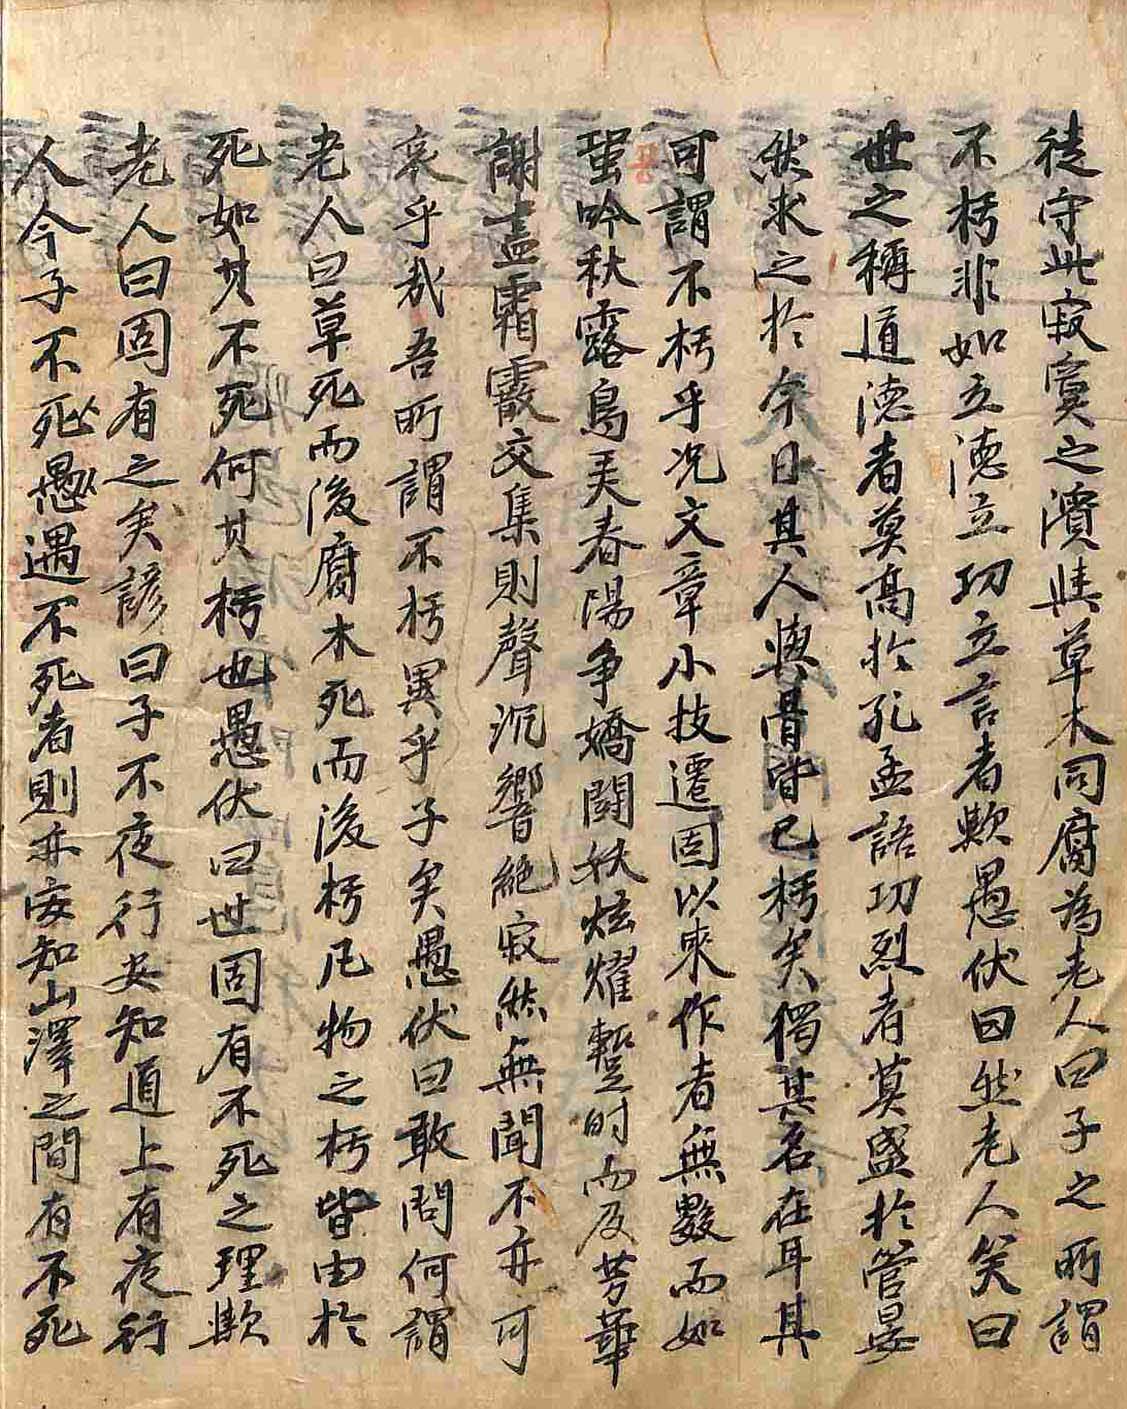 徒守此寂寞之濱與草木同腐為老人曰子之所謂
不朽非如立德立功立言者歟愚伏曰然老人笑曰
世之稱道德者莫高於孔孟語功烈者莫盛於管晏
然求之於今日其人與骨皆已朽矣獨其名在耳其
可謂不朽乎况文章小技遷固以來作者無數而如
蛩吟秋露鳥天春陽爭嬌鬪妖炫燿暫时而及芳華
謝盡霜霰交集則聲沉響絶寂然無聞不亦可
哀乎哉吾所謂不朽異乎子矣愚伏曰敢問何謂
老人曰草死而後腐木死而後朽凡物之朽皆由於
死如其不死何其朽也愚伏曰世固有不死之理歟
老人曰固有之矣諺曰子不夜行安知道上有夜行
人今子不死愚遇不死者則亦安知山澤之間有不死